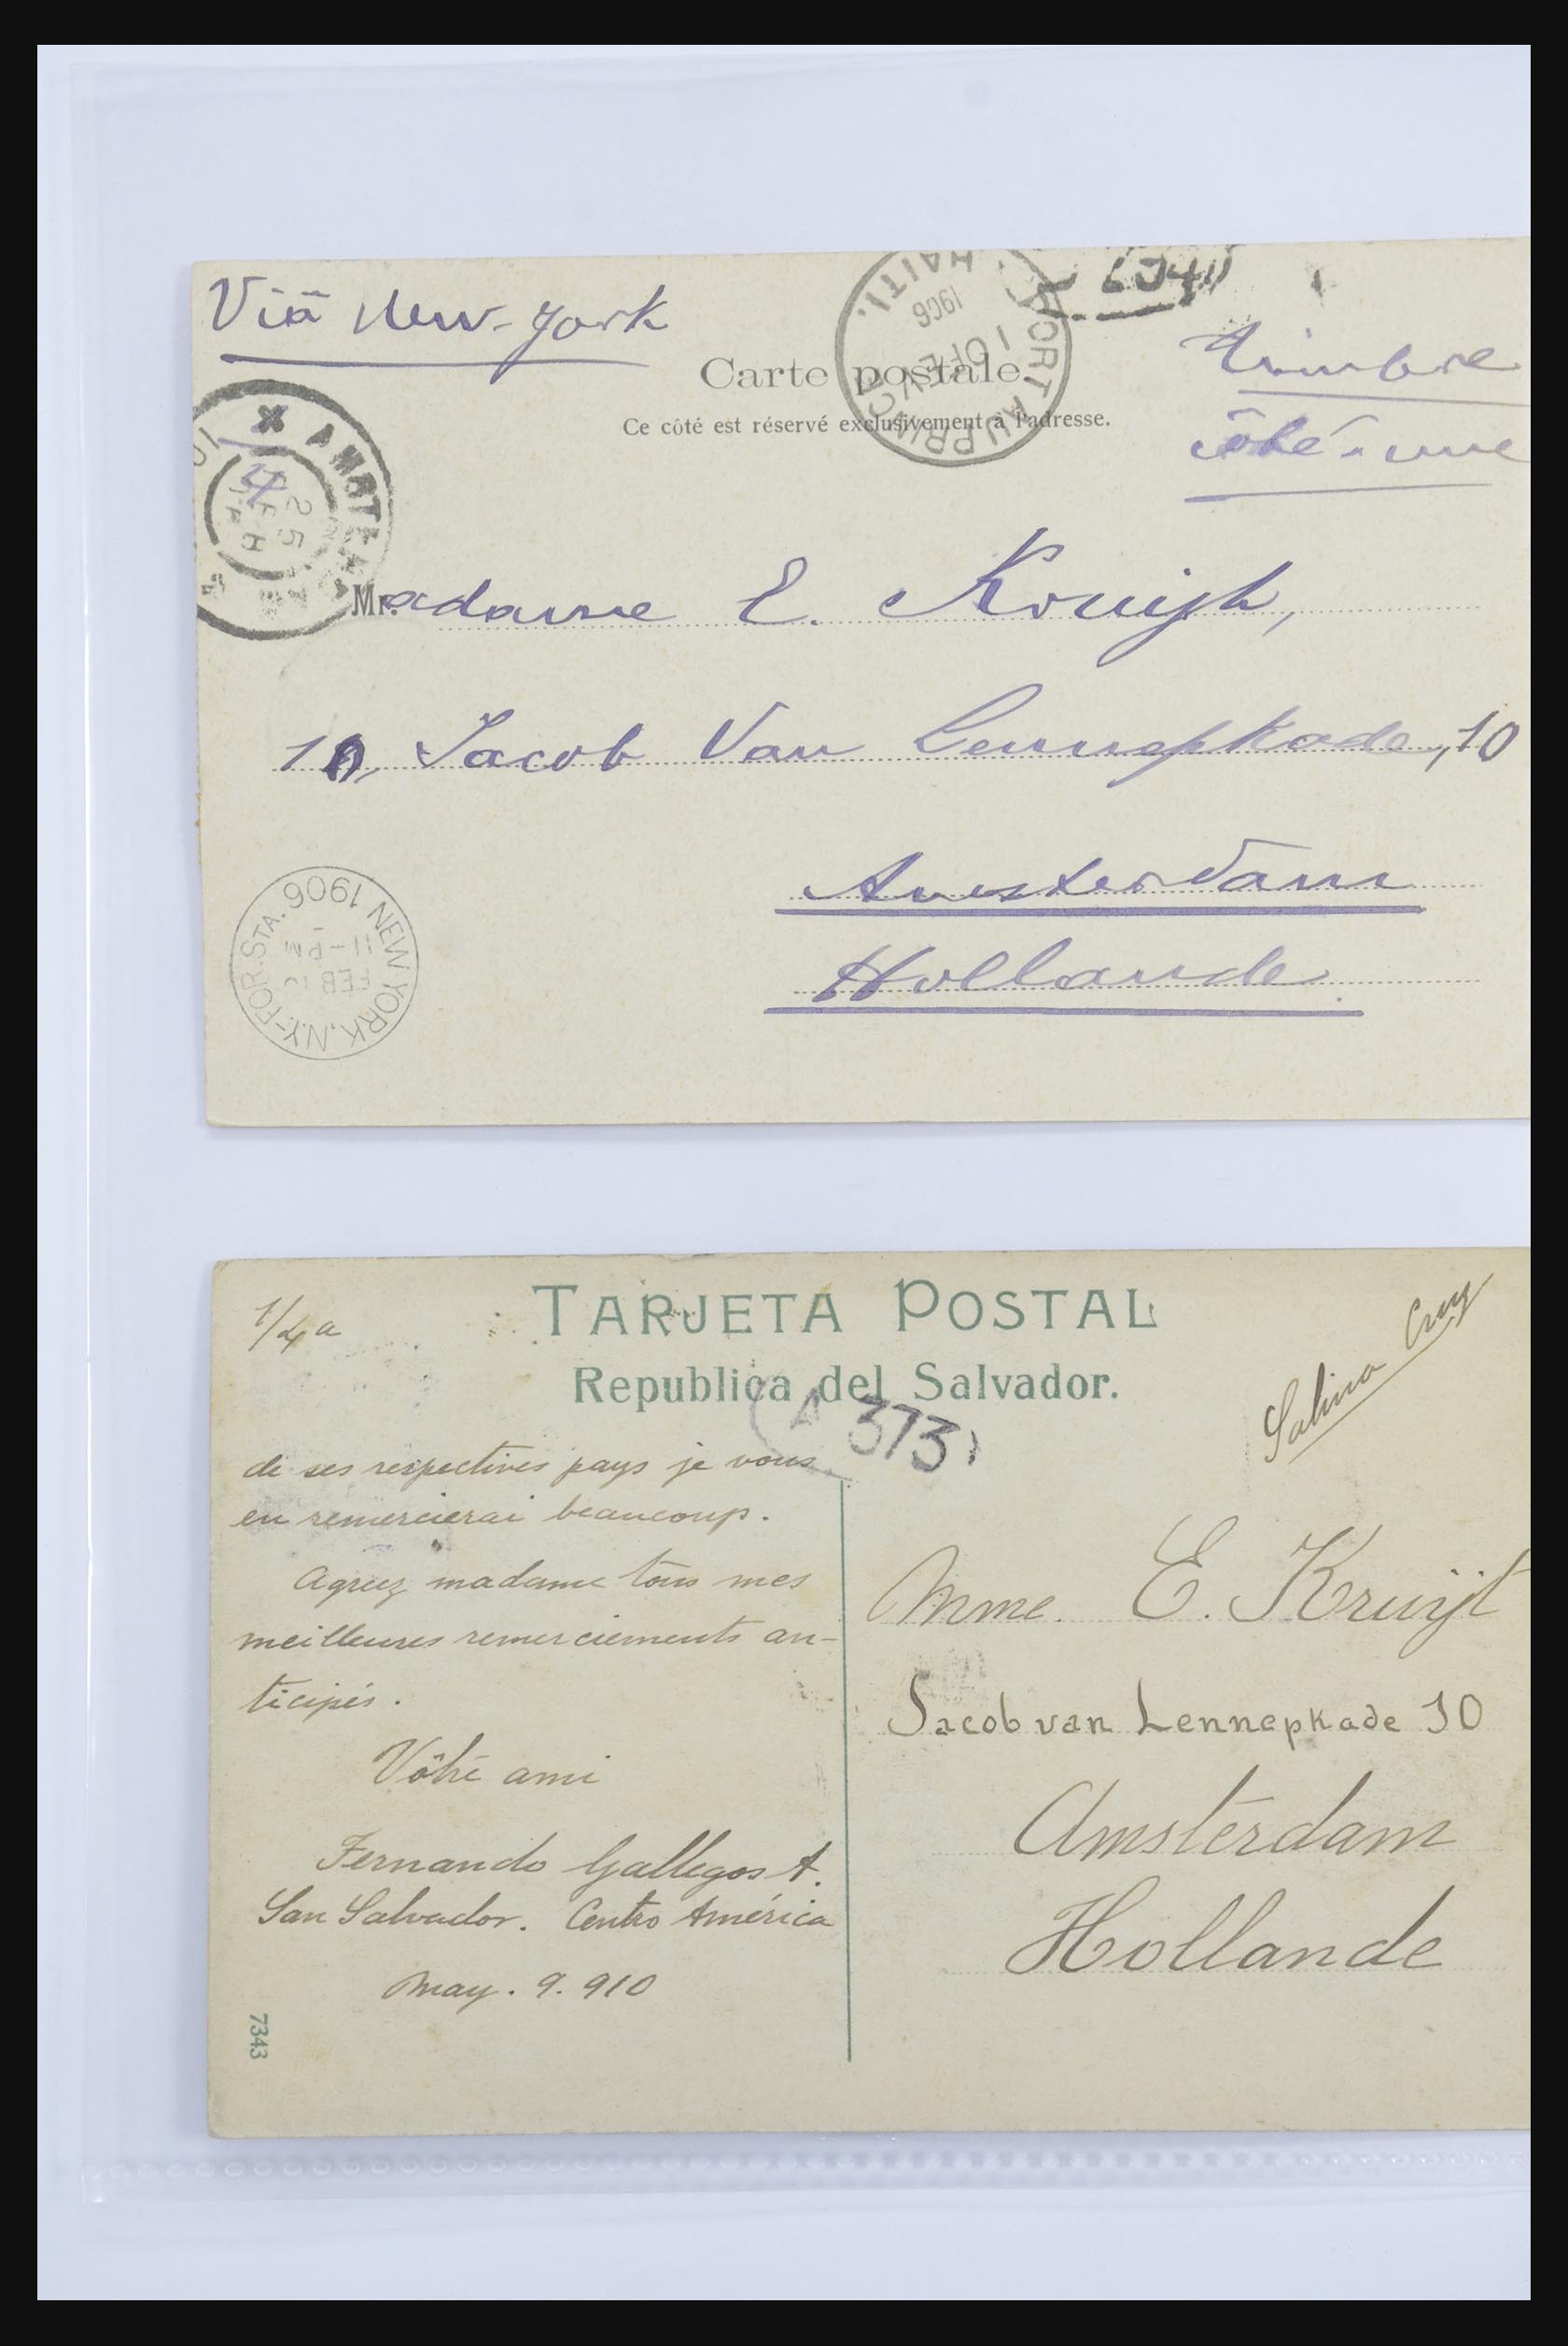 Viâ New-York
Carte postale
Ce côté est réservé exclusivement à l'adresse.
Timbre
côté-vue
PORT AU PRINCE
HAITI.
1906
AMSTERDAM
25
FEB
Mr.adame E. Kruijt,
10, Jacob Van Lennepkade, 10
Amsterdam
Hollande
NEW YORK, N.Y.-FOR.STA. 1906
11-PM
FEB 10
TARJETA POSTAL
Republica del Salvador.
1/4 a
A 373
Salina Cruz
de ses respectives pays je vous
en remercierai beaucoup.
Agreez madame tous mes
meilleures remerciements an-
ticipés.
Vôtre ami
Fernando Gallegos A.
San Salvador. Centro América
May. 9. 910
7343
Mme. E. Kruijt
Jacob van Lennepkade 10
Amsterdam
Hollande